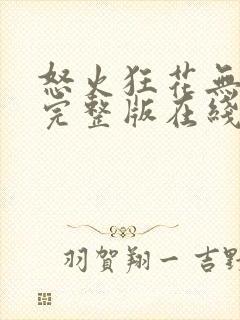 怒火狂花無
完整版在綫
羽賀翔一 吉野